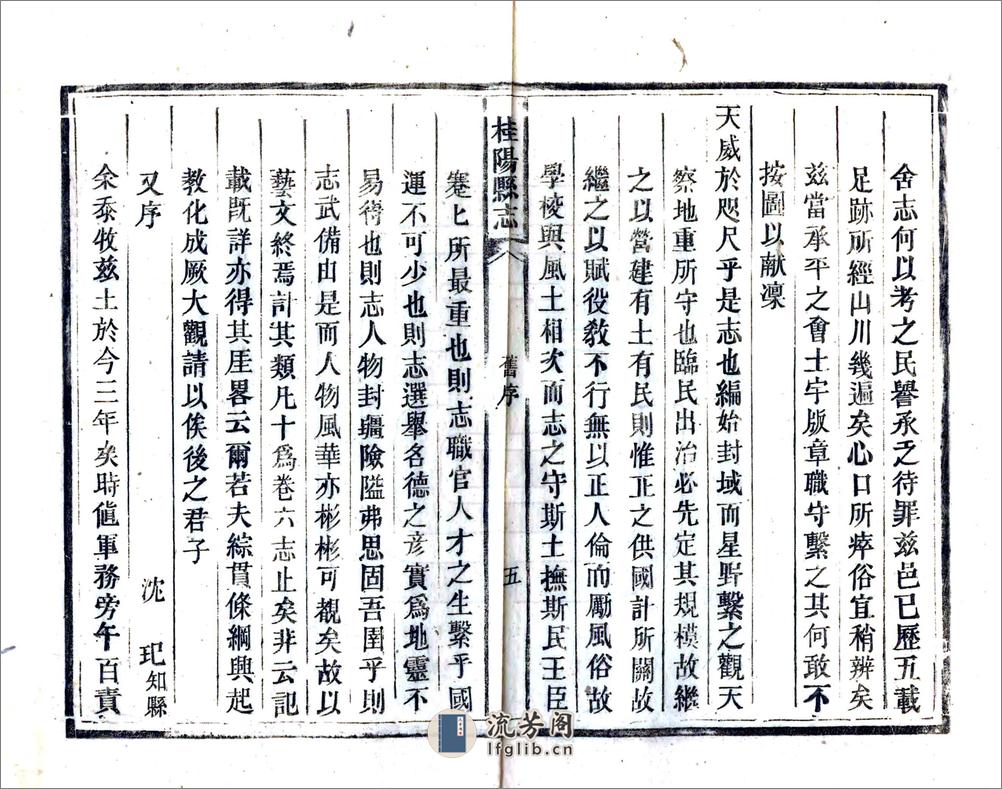 舍志何以考之民譽承乏待罪兹邑已歷五載
足跡所經山川幾遍矣心口所瘁俗宜稍辨矣
兹當承平之會土宇版章職守繫之其何敢不
按圖以献凜
天威於咫尺乎是志也編始封域而星野繫之觀天
察地重所守也臨民出治必先定其規模故繼
之以營建有土有民則惟正之供國計所關故
繼之以賦役敎不行無以正人倫而厲風俗故
學校與風土相次而志之守斯土撫斯民王臣
桂陽縣志
舊序
五
蹇匕所最重也則志職官人才之生繫乎國
運不可少也則志選舉名德之彦實爲地靈不
易得也則志人物封疆險隘弗思固吾圉乎則
志武備由是而人物風華亦彬彬可觀矣故以
藝文終焉計其類凡十爲卷六志止矣非云記
載旣詳亦得其厓畧云爾若夫綜貫條綱興起
教化成厥大觀請以俟後之君子
又序
沈玘知縣
余忝牧兹土於今三年矣時值軍務旁午百責
流芳阁
lfglib.cn